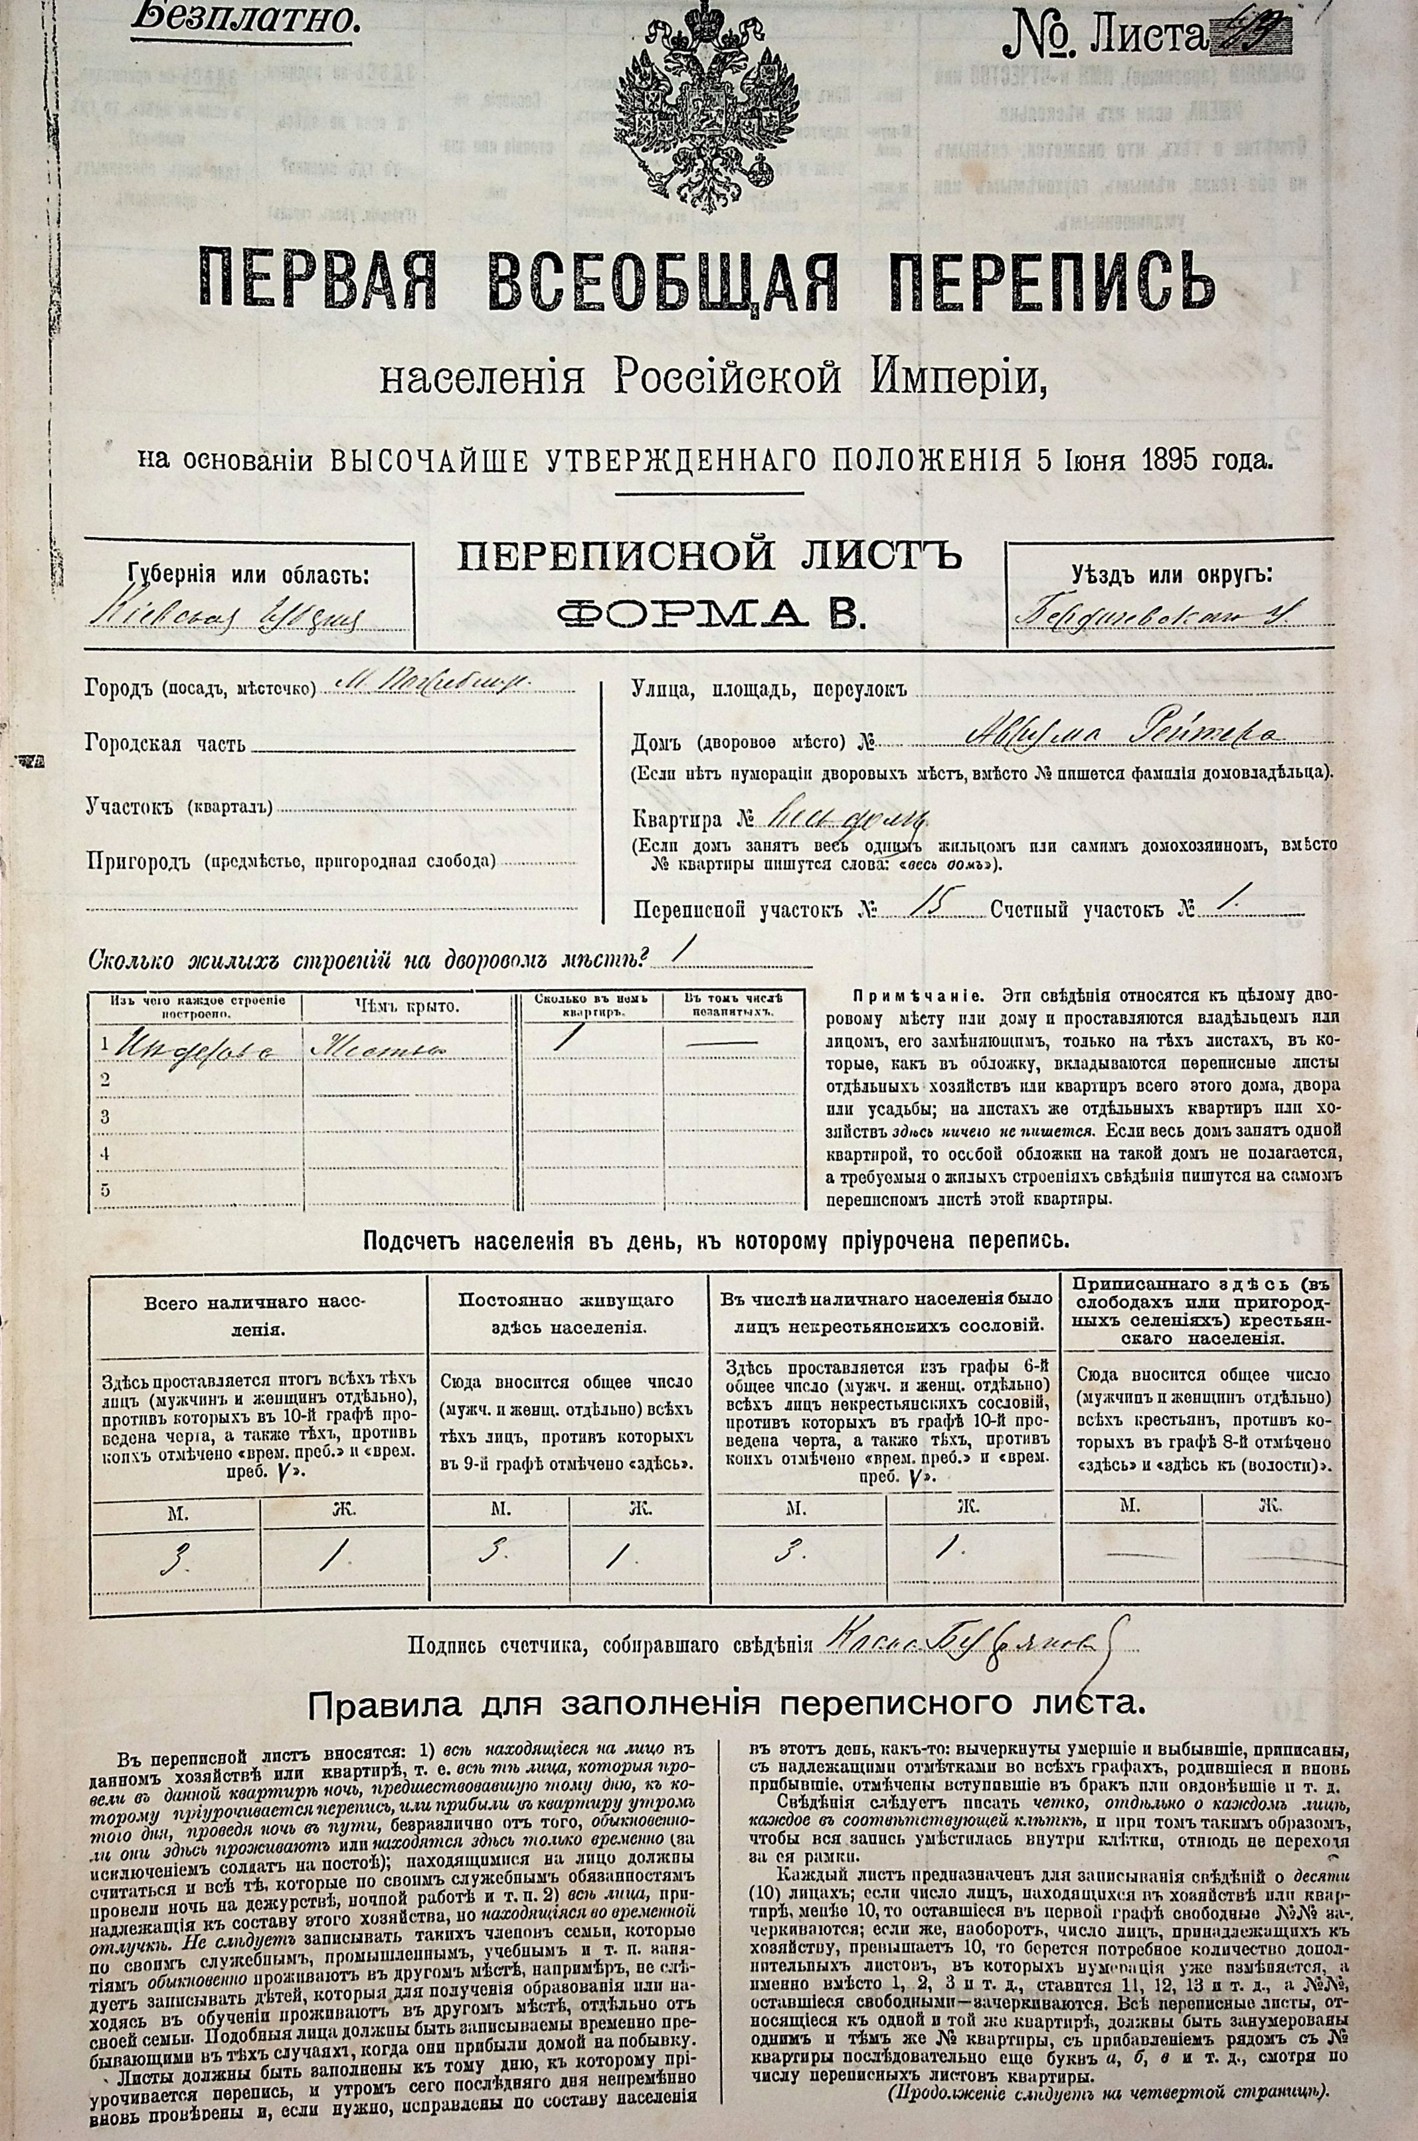 Безплатно.
№. Листа
ПЕРВАЯ ВСЕОБЩАЯ ПЕРЕПИСЬ
населенія Россійской Имперіи,
на основаніи ВЫСОЧАЙШЕ УТВЕРЖДЕННАГО ПОЛОЖЕНІЯ 5 Іюня 1895 года.
ПЕРЕПИСНОЙ ЛИСТЪ
ФОРМА В.
Губернія или область:
Кіевская губернія
Уѣздъ или округъ:
Бердичевскаго у.
Городъ (посадъ, мѣстечко) М. Погребище
Городская часть
Участокъ (кварталъ)
Пригородъ (предмѣстье, пригородная слобода)
Улица, площадь, переулокъ
Домъ (дворовое мѣсто) № Аврума Рейтера
(Если нѣтъ нумераціи дворовыхъ мѣстъ, вмѣсто № пишется фамилія домовладѣльца).
Квартира № весь домъ
(Если домъ занятъ весь однимъ жильцомъ или самимъ домохозяиномъ, вмѣсто
№ квартиры пишутся слова: «весь домъ»).
Переписной участокъ № 15 Счетный участокъ № 1.
Сколько жилыхъ строеній на дворовомъ мѣстѣ? 1
Изъ чего каждое строеніе построено. Чѣмъ крыто. Сколько въ немъ квартиръ. Въ томъ числѣ незанятыхъ.
1 Изъ дерева Жестью 1 —
2
3
4
5
Примѣчаніе. Эти свѣдѣнія относятся къ цѣлому дво-
ровому мѣсту или дому и проставляются владѣльцемъ или
лицомъ, его замѣняющимъ, только на тѣхъ листахъ, въ ко-
торые, какъ въ обложку, вкладываются переписные листы
отдѣльныхъ хозяйствъ или квартиръ всего этого дома, двора
или усадьбы; на листахъ же отдѣльныхъ квартиръ или хо-
зяйствъ здѣсь ничего не пишется. Если весь домъ занятъ одной
квартирой, то особой обложки на такой домъ не полагается,
а требуемыя о жилыхъ строеніяхъ свѣдѣнія пишутся на самомъ
переписномъ листѣ этой квартиры.
Подсчетъ населенія въ день, къ которому пріурочена перепись.
Всего наличнаго насе-
ленія.
Здѣсь проставляется итогъ всѣхъ тѣхъ
лицъ (мужчинъ и женщинъ отдѣльно),
противъ которыхъ въ 10-й графѣ про-
ведена черта, а также тѣхъ, противъ
коихъ отмѣчено «врем. преб.» и «врем.
преб. V».
Постоянно живущаго
здѣсь населенія.
Сюда вносится общее число
(мужч. и женщ. отдѣльно) всѣхъ
тѣхъ лицъ, противъ которыхъ
въ 9-й графѣ отмѣчено «здѣсь».
Въ числѣ наличнаго населенія было
лицъ некрестьянскихъ сословій.
Здѣсь проставляется изъ графы 6-й
общее число (мужч. и женщ. отдѣльно)
всѣхъ лицъ некрестьянскихъ сословій,
противъ которыхъ въ графѣ 10-й про-
ведена черта, а также тѣхъ, противъ
коихъ отмѣчено «врем. преб.» и «врем.
преб. V».
Приписаннаго здѣсь (въ
слободахъ или пригород-
ныхъ селеніяхъ) крестьян-
скаго населенія.
Сюда вносится общее число
(мужчинъ и женщинъ отдѣльно)
всѣхъ крестьянъ, противъ ко-
торыхъ въ графѣ 8-й отмѣчено
«здѣсь» и «здѣсь къ (волости)».
М. Ж. М. Ж. М. Ж. М. Ж.
3. 1. 3. 1. 3. 1. — —
Подпись счетчика, собиравшаго свѣдѣнія
Правила для заполненія переписного листа.
Въ переписной листъ вносятся: 1) всѣ находящіеся на лицо въ
данномъ хозяйствѣ или квартирѣ, т. е. всѣ тѣ лица, которыя про-
вели въ данной квартирѣ ночь, предшествовавшую тому дню, къ ко-
торому пріурочивается перепись, или прибыли въ квартиру утромъ
того дня, проведя ночь въ пути, безразлично отъ того, обыкновенно-
ли они здѣсь проживаютъ или находятся здѣсь только временно (за
исключеніемъ солдатъ на постоѣ); находящимися на лицо должны
считаться и всѣ тѣ, которые по своимъ служебнымъ обязанностямъ
провели ночь на дежурствѣ, ночной работѣ и т. п. 2) всѣ лица, при-
надлежащія къ составу этого хозяйства, но находящіяся во временной
отлучкѣ. Не слѣдуетъ записывать такихъ членовъ семьи, которые
по своимъ служебнымъ, промышленнымъ, учебнымъ и т. п. заня-
тіямъ обыкновенно проживаютъ въ другомъ мѣстѣ, напримѣръ, не слѣ-
дуетъ записывать дѣтей, которыя для полученія образованія или на-
ходясь въ обученіи проживаютъ въ другомъ мѣстѣ, отдѣльно отъ
своей семьи. Подобныя лица должны быть записываемы временно пре-
бывающими въ тѣхъ случаяхъ, когда они прибыли домой на побывку.
Листы должны быть заполнены къ тому дню, къ которому прі-
урочивается перепись, и утромъ сего послѣдняго дня непремѣнно
вновь провѣрены и, если нужно, исправлены по составу населенія
въ этотъ день, какъ-то: вычеркнуты умершіе и выбывшіе, приписаны,
съ надлежащими отмѣтками во всѣхъ графахъ, родившіеся и вновь
прибывшіе, отмѣчены вступившіе въ бракъ или овдовѣвшіе и т. д.
Свѣдѣнія слѣдуетъ писать четко, отдѣльно о каждомъ лицѣ,
каждое въ соотвѣтствующей клѣткѣ, и при томъ такимъ образомъ,
чтобы вся запись умѣстилась внутри клѣтки, отнюдь не переходя
за ея рамки.
Каждый листъ предназначенъ для записыванія свѣдѣній о десяти
(10) лицахъ; если число лицъ, находящихся въ хозяйствѣ или квар-
тирѣ, менѣе 10, то оставшіеся въ первой графѣ свободные №№ за-
черкиваются; если же, наоборотъ, число лицъ, принадлежащихъ къ
хозяйству, превышаетъ 10, то берется потребное количество допол-
нительныхъ листовъ, въ которыхъ нумерація уже измѣняется, а
именно вмѣсто 1, 2, 3 и т. д., ставится 11, 12, 13 и т. д., а №№,
оставшіеся свободными—зачеркиваются. Всѣ переписные листы, от-
носящіеся къ одной и той же квартирѣ, должны быть занумерованы
однимъ и тѣмъ же № квартиры, съ прибавленіемъ рядомъ съ №
квартиры послѣдовательно еще буквъ а, б, в и т. д., смотря по
числу переписныхъ листовъ квартиры.
(Продолженіе слѣдуетъ на четвертой страницѣ).